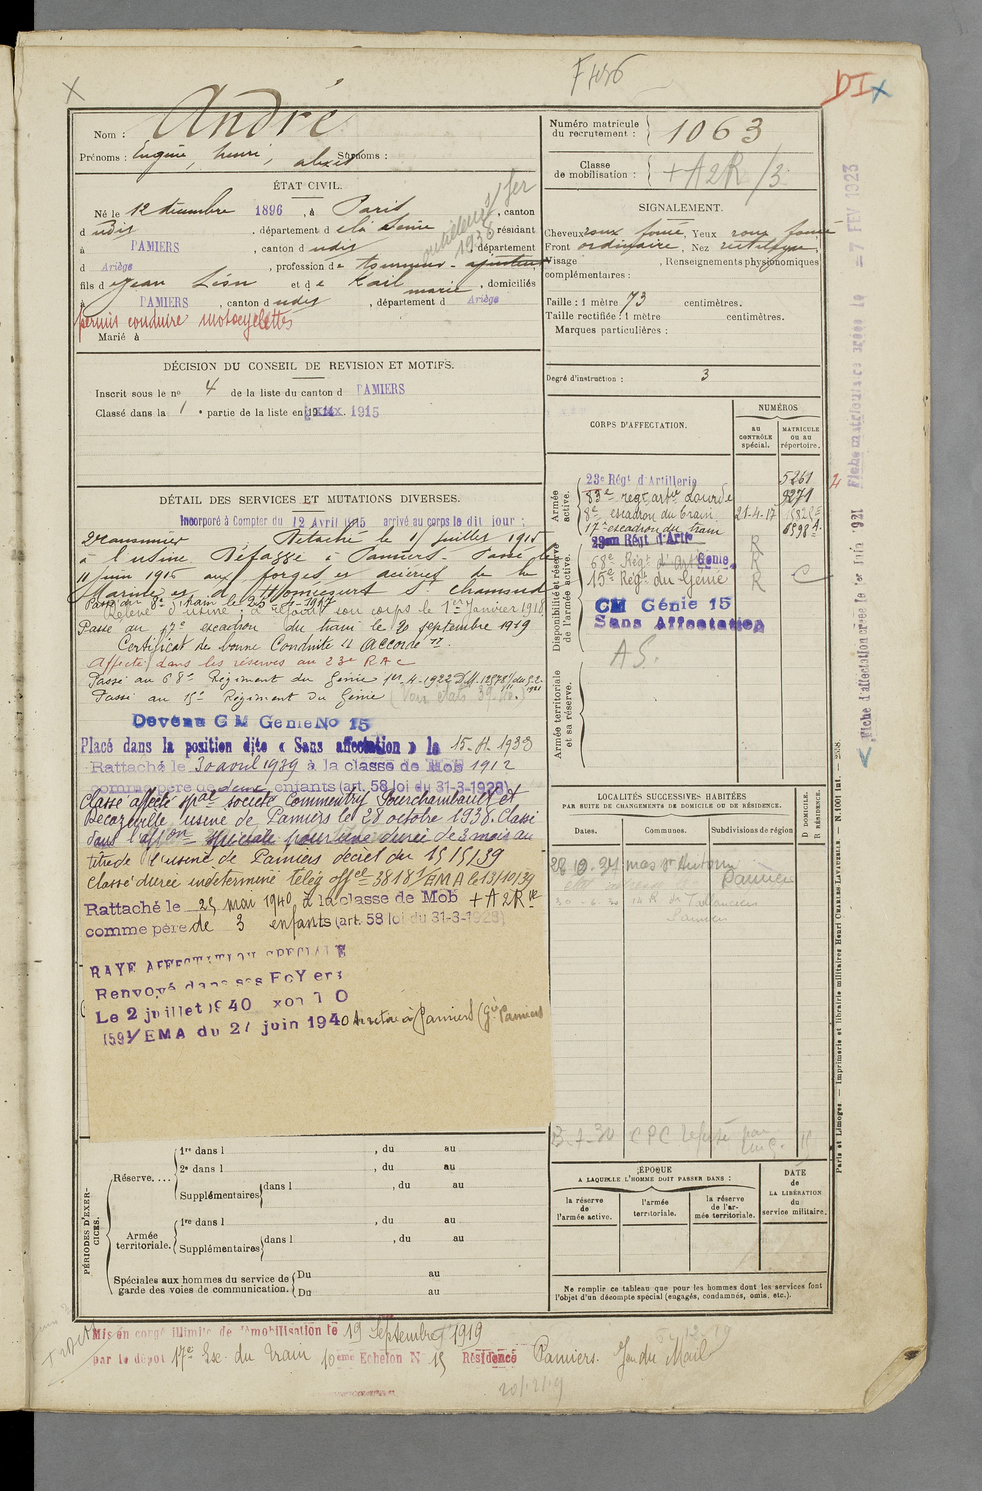 X
DI x
Nom : André
Prénoms : Eugène, henri, alexis Surnoms :
ÉTAT CIVIL.
Né le 12 décembre 1896, à Paris, canton
d udis, département de la Seine, résidant
à PAMIERS, canton d udis, département
d Ariège, profession de tourneur - ajusteur
1938
fils de Jean Léon et de Kail marie, domiciliés
à PAMIERS, canton d udis, département d Ariège
permis conduire motocyclettes
Marié à
Numéro matricule du recrutement : 1063
Classe de mobilisation : + A2R /3
SIGNALEMENT.
Cheveux roux foncé, Yeux roux foncé
Front ordinaire, Nez rectiligne,
Visage , Renseignements physionomiques
complémentaires :
Taille : 1 mètre 73 centimètres.
Taille rectifiée : 1 mètre centimètres.
Marques particulières :
DÉCISION DU CONSEIL DE REVISION ET MOTIFS.
Inscrit sous le no 4 de la liste du canton d PAMIERS
Classé dans la 1e partie de la liste en 1915
Degré d'instruction : 3
CORPS D'AFFECTATION.
NUMÉROS
AU CONTRÔLE spécial.
MATRICULE OU AU répertoire.
Armée active.
23e Régt d'Artillerie 5261
83e régt artie Lourde 9271
8e escadron du train 21-4-17
17e escadron du train 6598
Disponibilité et réserve de l'armée active.
23em Régt d'Artie R
68e Régt d'Artie Génie. R
15e Régt du Génie R
CM Génie 15
Sans Affectation
AS.
Armée territoriale et sa réserve.
DÉTAIL DES SERVICES ET MUTATIONS DIVERSES.
Incorporé à Compter du 12 Avril 1915 arrivé au corps le dit jour :
2e canonnier Détaché le 15 Juillet 1915
à l'usine Défazzé à Pamiers. Passé le
11 Juin 1916 aux forges et aciéries de la
Marine et d'Homécourt St chamond
Passé au 8e d'train le 20-4-1917
Relevé d'usine ; à rejoint son corps le 1er Janvier 1918
Passé au 17e escadron du train le 20 septembre 1919
Certificat de bonne Conduite "Accordé".
Affecté dans les réserves au 23e RAC
Passé au 68e Régiment du Génie 1er-4-1922
Passé au 15e Régiment du Génie
Devenu CM Génie No 15
Placé dans la position dite « Sans affectation » le 15-4-1938
Rattaché le 30 avril 1939 à la classe de Mob 1912
comme père de deux enfants (art. 58 loi du 31-3-1928)
Classé affecté spal société Commentry Fourchambault et
Decazeville usine de Pamiers le 28 octobre 1938. Classé
dans l'affon spéciale pour une durée de 3 mois au
titre de l'usine de Pamiers décret du 15/5/39
Classé durée indéterminé télég offel 3818 3/EMA le 13/10/39
Rattaché le 25 mai 1940 à la classe de Mob + A2Rve
comme père de 3 enfants (art. 58 loi du 31-3-1928)
RAYE AFFECTATION SPECIALE
Renvoyé dans ses FoYers
Le 2 juillet 1940
1/EMA du 27 juin 1940 se retire à Pamiers
LOCALITÉS SUCCESSIVES HABITÉES
PAR SUITE DE CHANGEMENTS DE DOMICILE OU DE RÉSIDENCE.
Dates. Communes. Subdivisions de région
D DOMICILE. R RÉSIDENCE.
mas St Antonin Pamiers
PÉRIODES D'EXERCICES.
Réserve....
1re dans l , du au
2e dans l , du au
Supplémentaires dans l , du au
Armée territoriale.
1re dans l , du au
Supplémentaires dans l , du au
Spéciales aux hommes du service de garde des voies de communication.
Du au
Du au
ÉPOQUE
A LAQUELLE L'HOMME DOIT PASSER DANS :
la réserve de l'armée active.
l'armée territoriale.
la réserve de l'armée territoriale.
DATE de LA LIBÉRATION du service militaire.
Ne remplir ce tableau que pour les hommes dont les services font
l'objet d'un décompte spécial (engagés, condamnés, omis, etc.).
Mis en congé illimité de démobilisation le 19 Septembre 1919
par le dépôt 17e Esc. du Train 10ème Echelon N° 15 Résidence Pamiers.
Fiche matriculaire créée le = 7 FEV 1923
Fiche d'affectation créée le 1er Juin 1921
Paris et Limoges. — Imprimerie et librairie militaires Henri CHARLES-LAVAUZELLE.